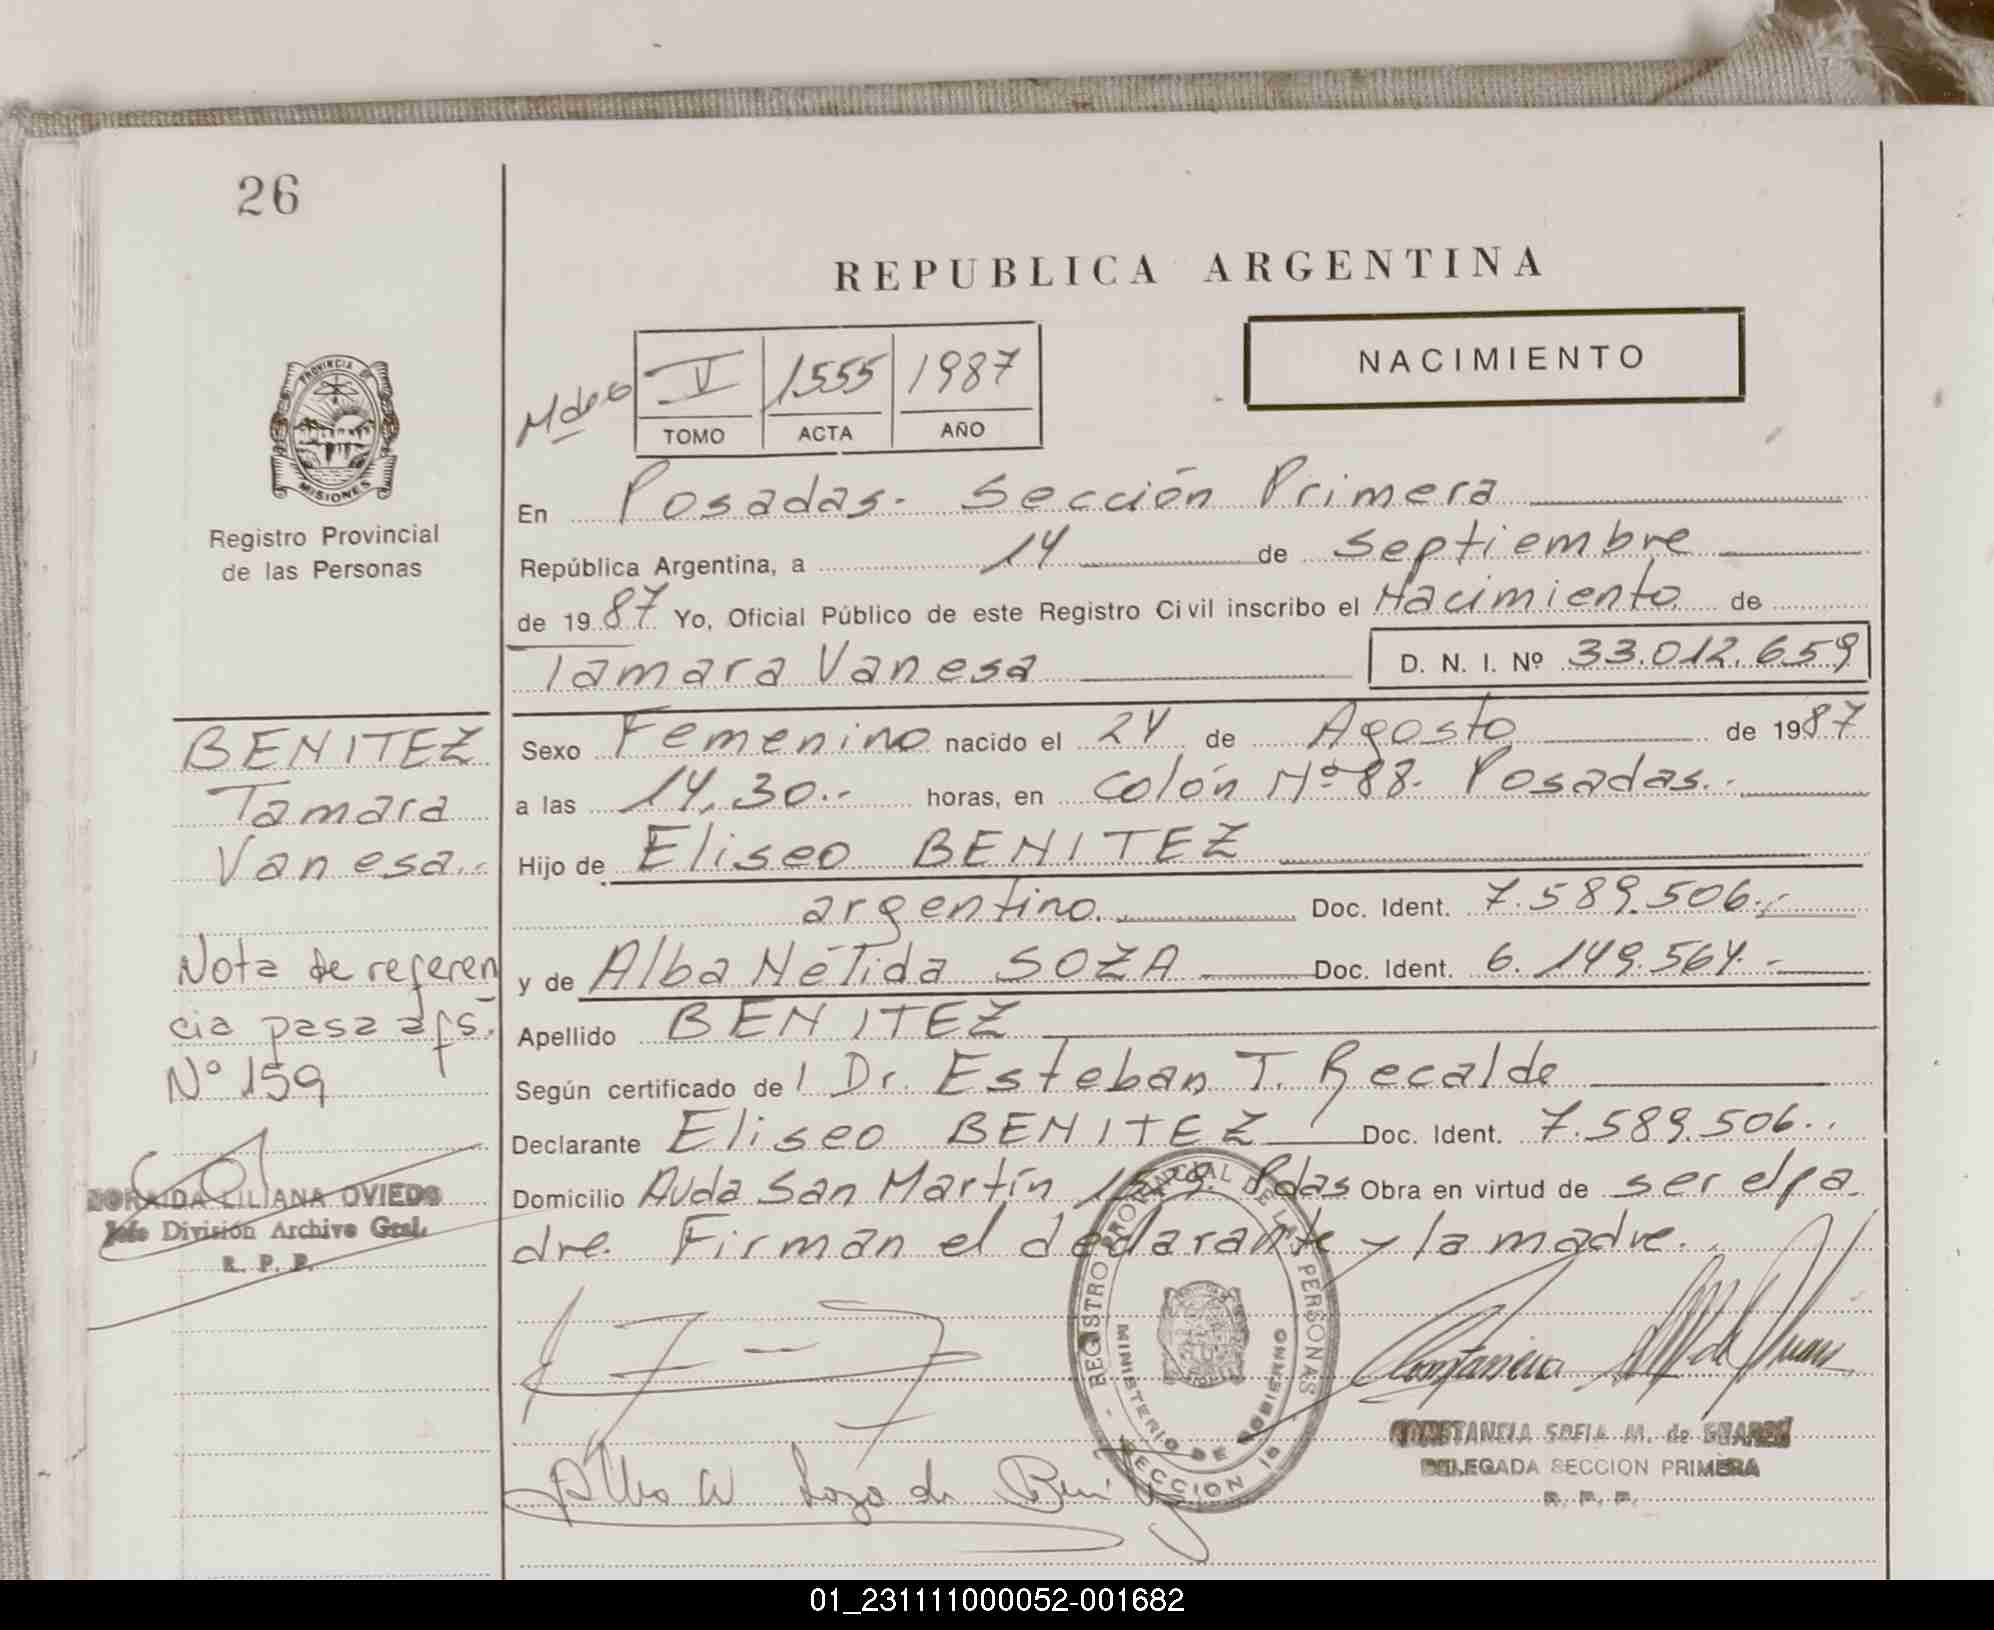 26
REPUBLICA ARGENTINA
NACIMIENTO
V 1555 1987
TOMO ACTA AÑO
PROVINCIA DE
MISIONES
Registro Provincial
de las Personas
En Posadas.- Sección Primera
República Argentina, a 14 de Septiembre
de 1987 Yo, Oficial Público de este Registro Civil inscribo el Nacimiento de
Tamara Vanesa D. N. I. Nº 33.012.659
Sexo Femenino nacido el 24 de Agosto de 1987
a las 14,30.- horas, en Colón Nº 88.- Posadas.-
Hijo de Eliseo BENITEZ
argentino. Doc. Ident. 7.589.506.-
y de Alba Nélida SOZA Doc. Ident. 6.149.564.-
Apellido BENITEZ
Según certificado del Dr. Esteban T. Recalde
Declarante Eliseo BENITEZ Doc. Ident. 7.589.506..
Domicilio Avda San Martín Pdas Obra en virtud de ser el pa
dre. Firman el declarante y la madre.
BENITEZ
Tamara
Vanesa.-
Nota de referen
cia pasa a fs.
Nº 159
ZORAIDA LILIANA OVIEDO
Jefe División Archivo Gral.
R. P. P.
REGISTRO PROVINCIAL DE LAS PERSONAS
MINISTERIO DE GOBIERNO
SECCION 1ª
Alba N Soza de
CONSTANCIA SOFIA M. de SUAREZ
DELEGADA SECCION PRIMERA
R. P. P.
01_231111000052-001682